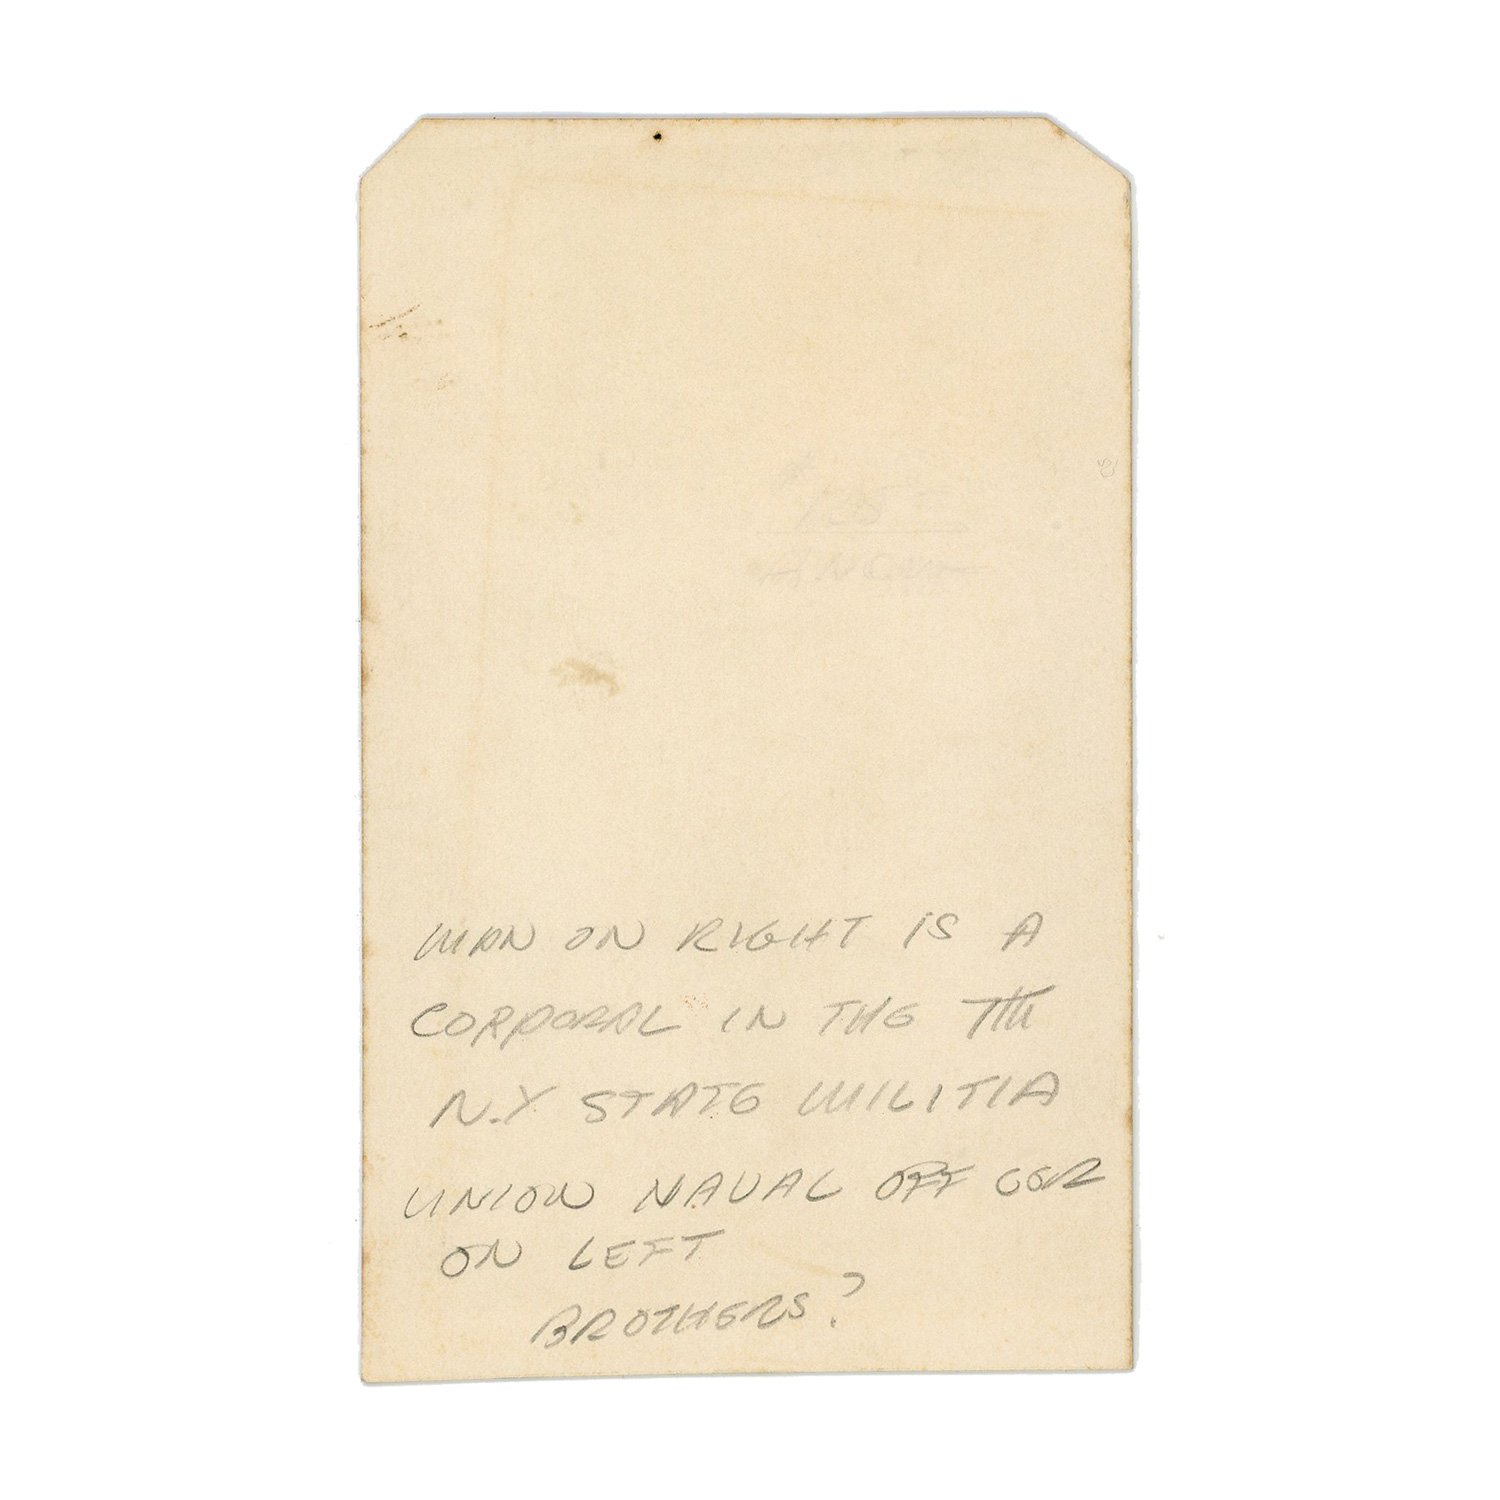 MAN ON RIGHT IS A
CORPORAL IN THE 7th
N.Y STATE MILITIA
UNION NAVAL OFFICER
ON LEFT
BROTHERS?